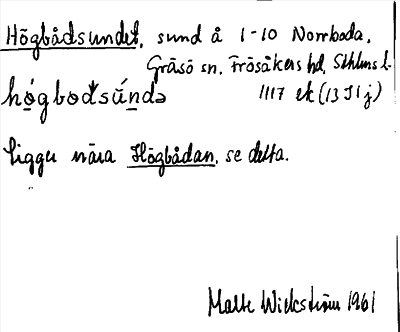 Högbådsundet, sund å 1-10 Norrboda,
Gräsö sn, Frösåkers hd, Sthlms l.
hǫ́gbodsúndə 1117 ek (13 I 1 j)
Ligger nära Högbådan, se detta.
Malte Wickström 1961